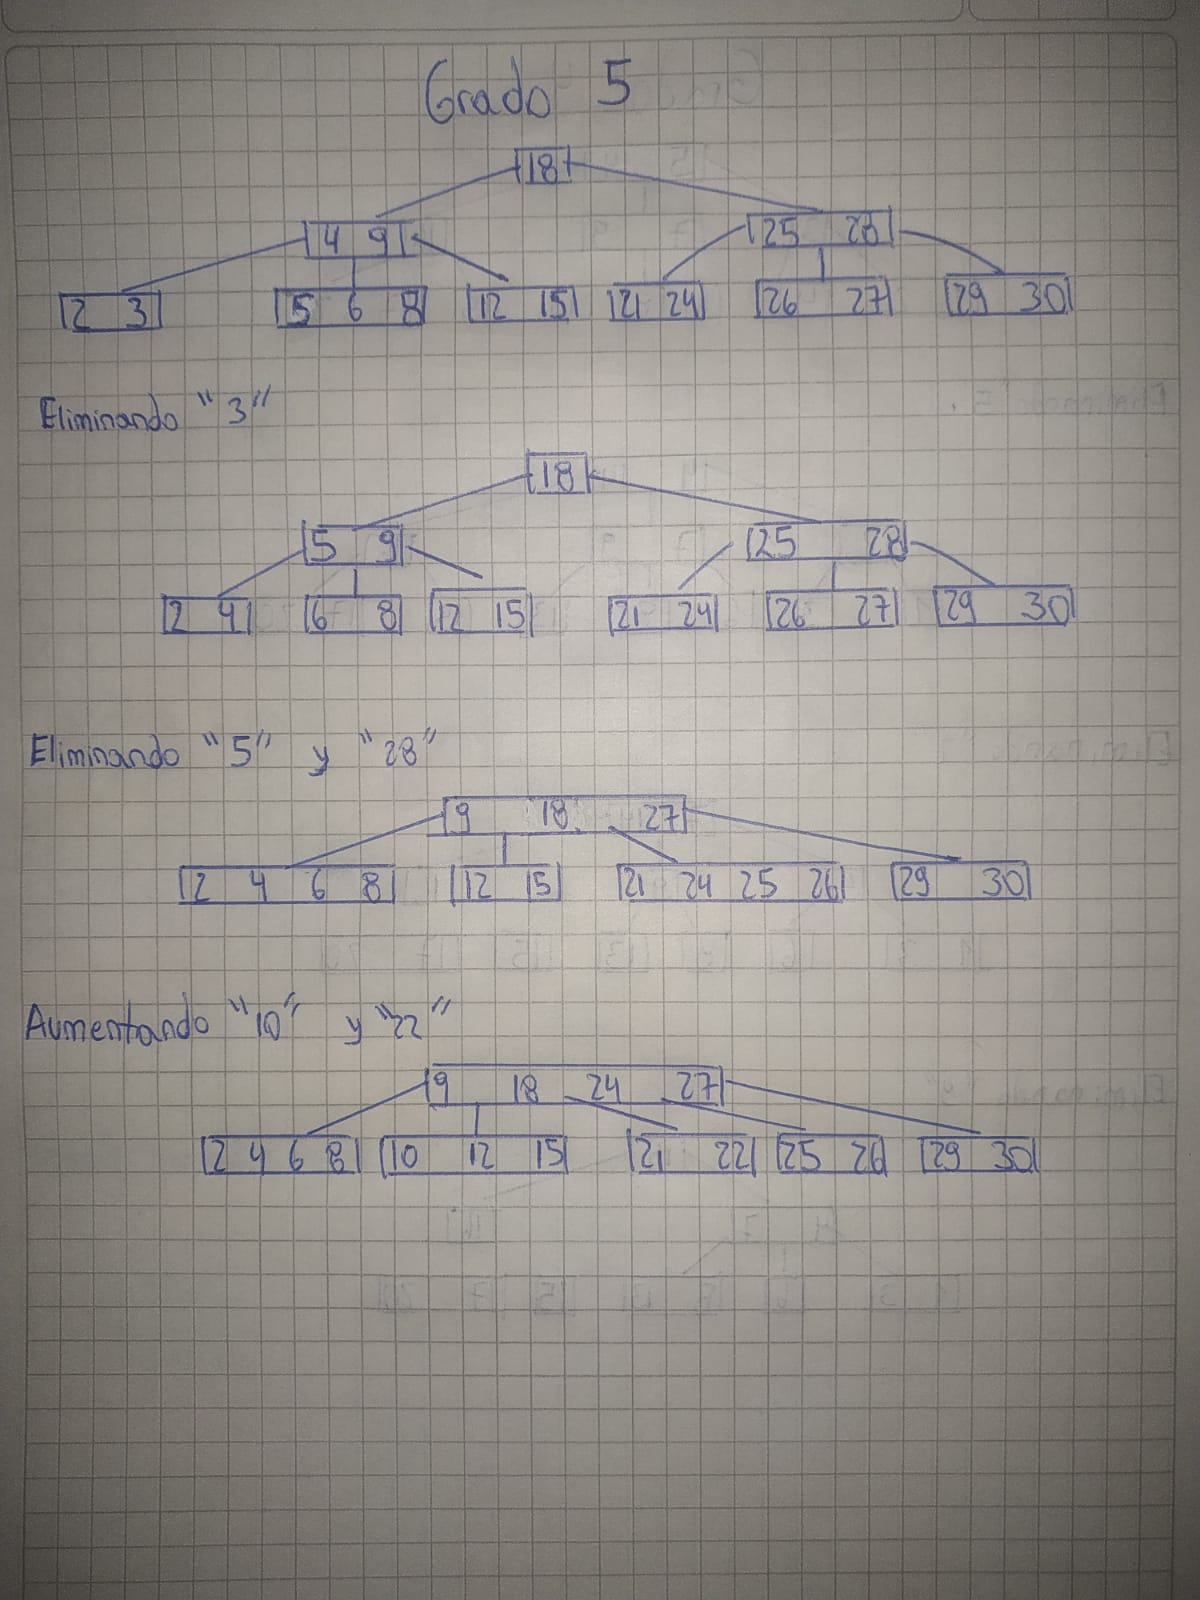 Grado 5
18
4 9 25 28
2 3 5 6 8 12 15 21 24 26 27 29 30
Eliminando "3"
18
5 9 25 28
2 4 6 8 12 15 21 24 26 27 29 30
Eliminando "5" y "28"
9 18 27
2 4 6 8 12 15 21 24 25 26 29 30
Aumentando "10" y "22"
9 18 24 27
2 4 6 8 10 12 15 21 22 25 26 29 30